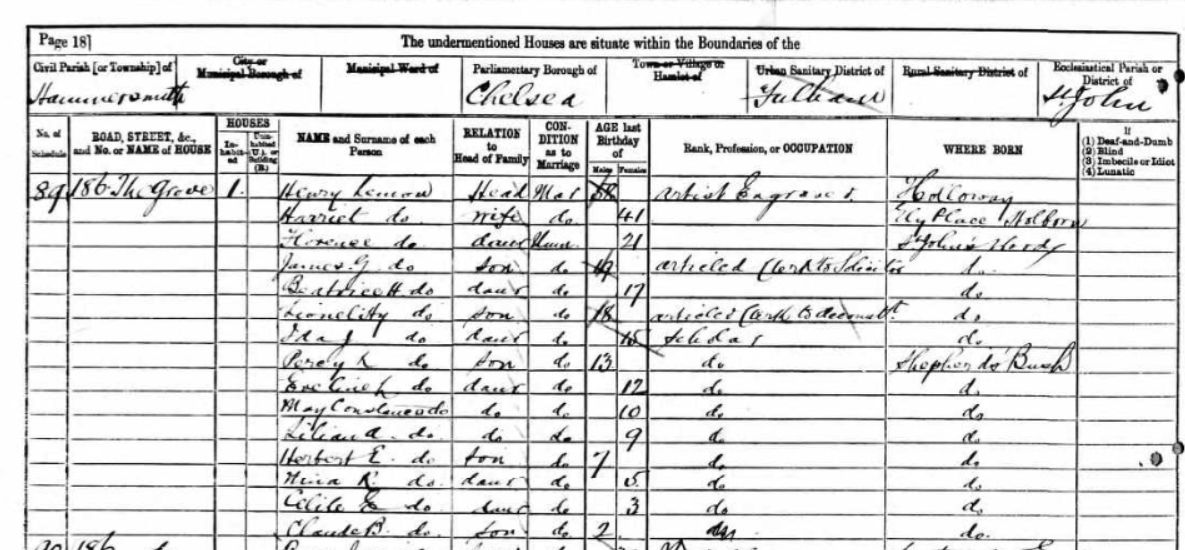 Page 18]
The undermentioned Houses are situate within the Boundaries of the
Civil Parish [or Township] of City or Municipal Borough of Municipal Ward of Parliamentary Borough of Town or Village or Hamlet of Urban Sanitary District of Rural Sanitary District of Ecclesiastical Parish or District of
Hammersmith Chelsea Fulham St John
No. of Schedule ROAD, STREET, &c., and No. or NAME of HOUSE HOUSES Inhabited Uninhabited (U.), or Building (B.) NAME and Surname of each Person RELATION to Head of Family CONDITION as to Marriage AGE last Birthday of Males Females Rank, Profession, or OCCUPATION WHERE BORN If (1) Deaf-and-Dumb (2) Blind (3) Imbecile or Idiot (4) Lunatic
89 186 The Grove 1 Henry Lemon Head Mar Artist Engraver Holloway
Harriet do wife do 41 Ely Place Holborn
Florence do daur Unm 21 St John's Wood
James G do son do 19 articled Clerk to Solicitor do
Beatrice H do daur do 17 do
Lionel do son do 18 articled Clerk to do
Ida J do daur do 15 Scholar do
Percy do son do 13 do Shepherds Bush
Eveline do daur do 12 do do
May Constance do do do 10 do do
Lilian A do do do 9 do do
Herbert E. do son do 7 do do
Nina R. do daur do 5 do do
E do daur do 3 do do
Claude B. do son do 2 do
186